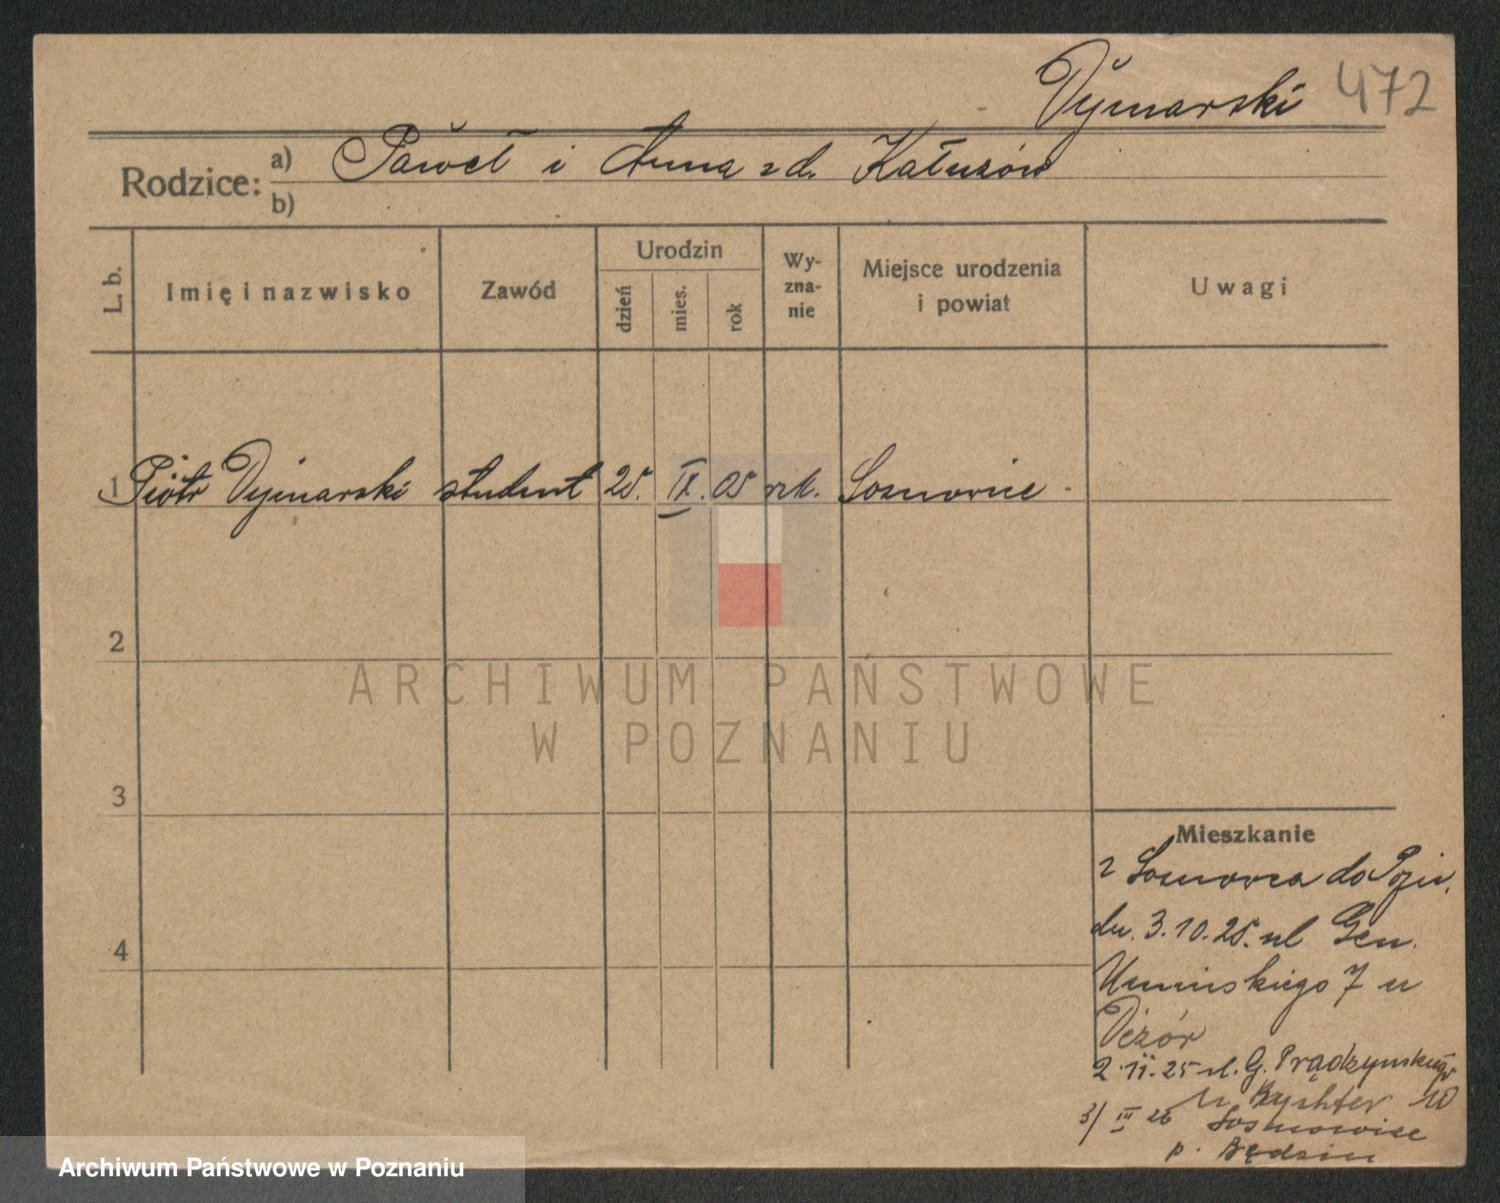 Vymarski 472
Rodzice: a) Paweł i Anna z d. Kałuzów
b)
L. b.
Imię i nazwisko
Zawód
Urodzin
dzień
mies.
rok
Wy-
zna-
nie
Miejsce urodzenia
i powiat
Uwagi
1 Piotr Vymarski student 25. IX. 05 rzk. Sosnowice
2
3
4
Mieszkanie
z Sosnowca do Pozn.
dn. 3.10.25. ul Gen.
Umińskiego 7 u
2.11.25 ul. G. Prądzyńskiego
u Rychter 10
3/ III 26 Sosnowice
p. Będzin
ARCHIWUM PAŃSTWOWE
W POZNANIU
Archiwum Państwowe w Poznaniu